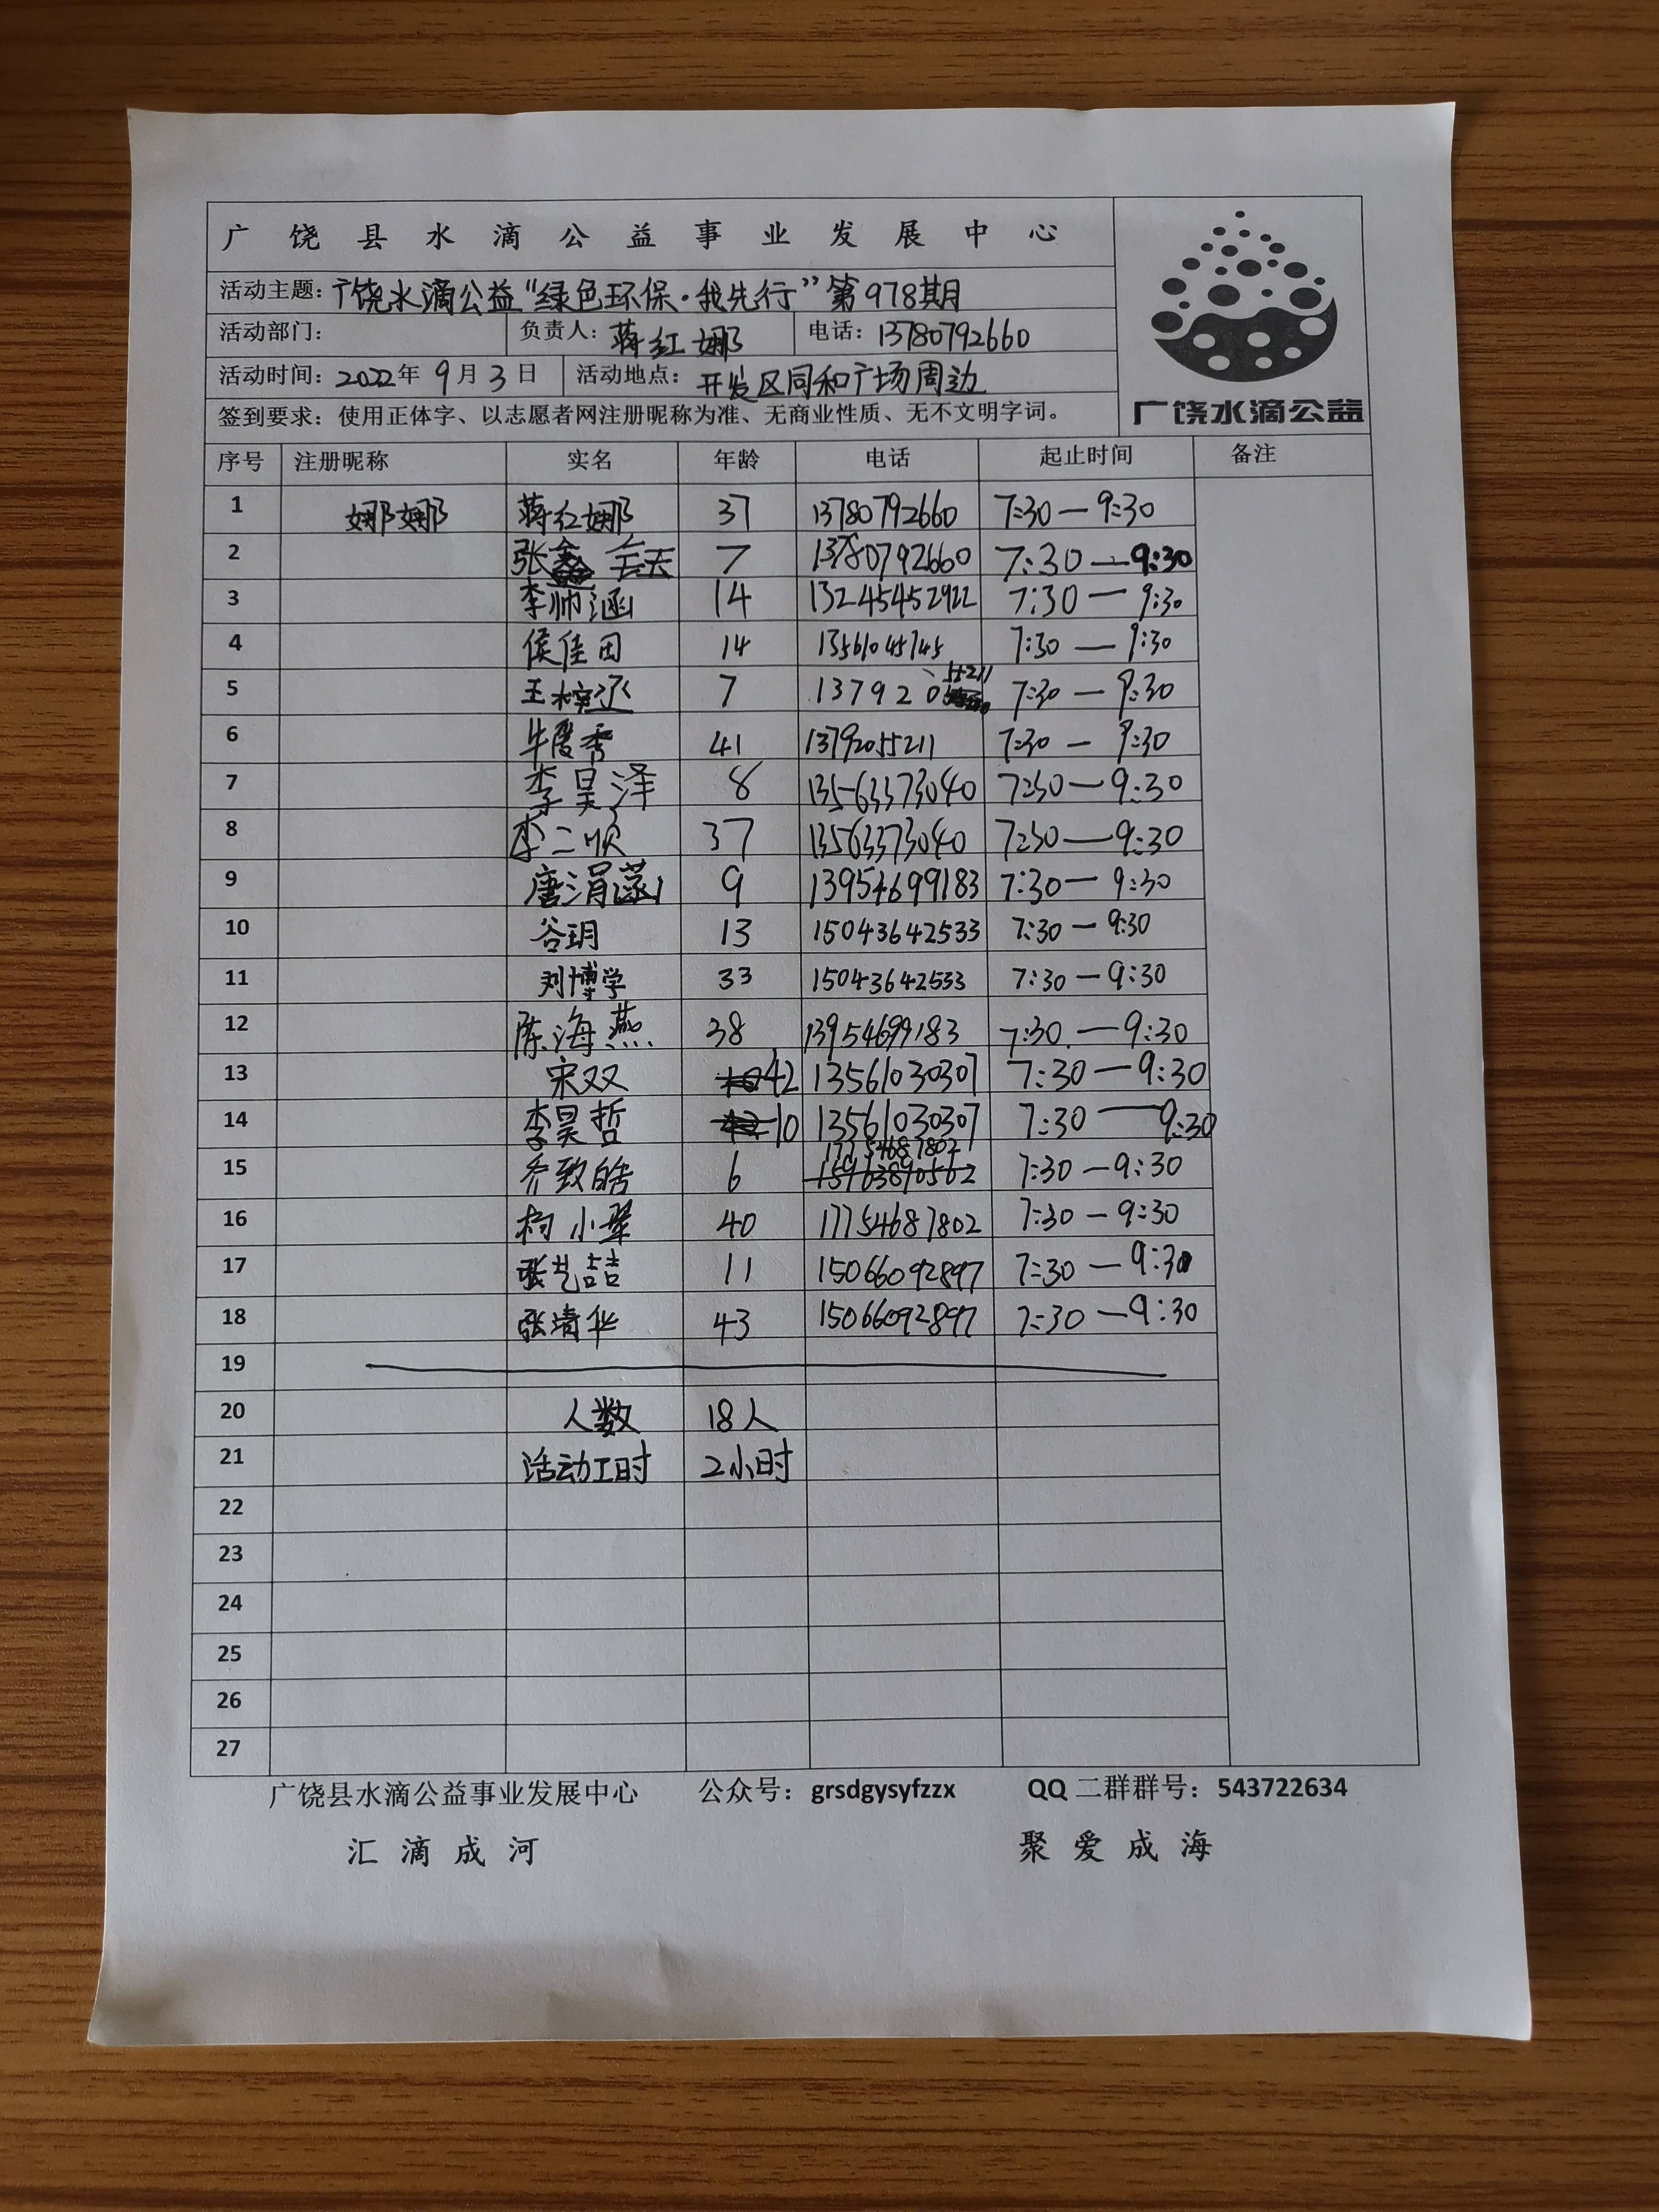 广饶县水滴公益事业发展中心
活动主题：广饶水滴公益“绿色环保·我先行”第978期
活动部门： 负责人：蒋红娜 电话：13780792660
活动时间：2022年9月3日 活动地点：开发区同和广场周边
签到要求：使用正体字、以志愿者网注册昵称为准、无商业性质、无不文明字词。
广饶水滴公益
序号 注册昵称 实名 年龄 电话 起止时间 备注
1 娜娜 蒋红娜 37 13780792660 7:30—9:30
2 张 7 13780792660 7:30—9:30
3 李帅涵 14 7:30—9:30
4 侯佳田 14 13561045745 7:30—9:30
5 王梓丞 7 13792055211 7:30—9:30
6 牛爱秀 41 13792055211 7:30—9:30
7 李昊泽 8 13563373040 7:30—9:30
8 李二顺 37 13563373040 7:30—9:30
9 唐涓 9 13954699183 7:30—9:30
10 谷玥 13 15043642533 7:30—9:30
11 刘博学 33 15043642533 7:30—9:30
12 陈海燕 38 13954699183 7:30—9:30
13 宋双 42 13561030307 7:30—9:30
14 李昊哲 10 13561030307 7:30—9:30
15 乔致皓 6 17754687802 7:30—9:30
16 小翠 40 17754687802 7:30—9:30
17 张艺喆 11 15066092897 7:30—9:30
18 张清华 43 15066092897 7:30—9:30
19
20 人数 18人
21 活动工时 2小时
22
23
24
25
26
27
广饶县水滴公益事业发展中心 公众号：grsdgysyfzzx QQ二群群号：543722634
汇滴成河 聚爱成海